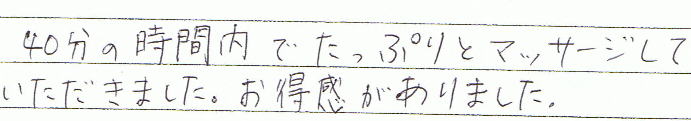 40分の時間内でたっぷりとマッサージして
いただきました。お得感がありました。